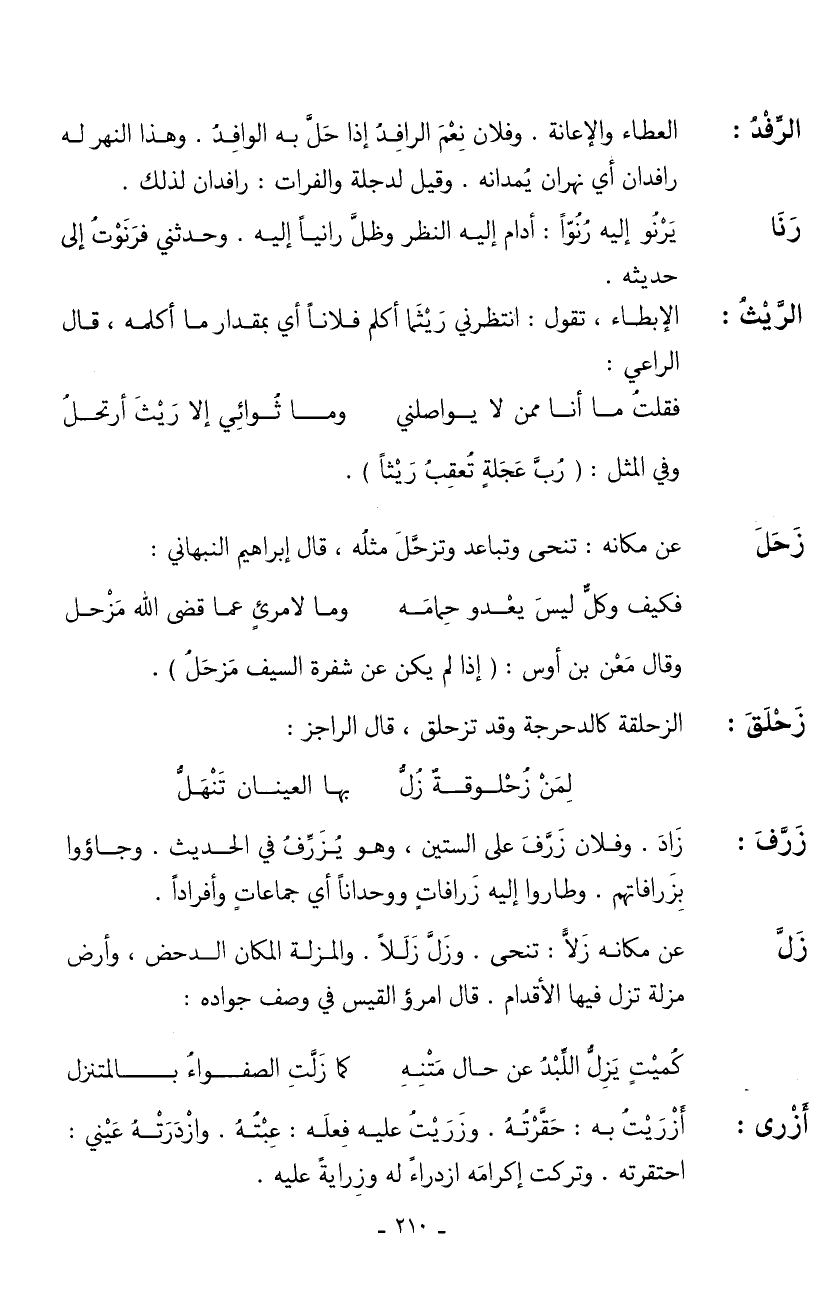 الرِّفْدُ : العطاء والإعانة . وفلان نِعْمَ الرافِدُ إذا حَلَّ به الوافِدُ . وهذا النهر له
رافدان أي نهران يُمدانه . وقيل لدجلة والفرات : رافدان لذلك .
رَنَا يَرْنُو إليه رُنُوّاً : أدام إليه النظر وظلَّ رانياً إليه . وحدثني فرَنَوْتُ إلى
حديثه .
الرَّيْثُ : الإبطاء ، تقول : انتظرني رَيْثَما أكلم فلاناً أي بمقدار ما أكلمه ، قال
الراعي :
فقلتُ ما أنا ممن لا يواصلني وما ثُوائي إلا رَيْثَ أرتحلُ
وفي المثل : ( رُبَّ عَجَلةٍ تُعقِبُ رَيْثاً ) .
زَحَلَ عن مكانه : تنحى وتباعد وتزحَّلَ مثلُه ، قال إبراهيم النبهاني :
فكيف وكلٌّ ليسَ يعْدو حِمامَه وما لامرئٍ عما قضى الله مَزْحل
وقال مَعْن بن أوس : ( إذا لم يكن عن شفرة السيف مَزحَلُ ) .
زَحْلَقَ : الزحلقة كالدحرجة وقد تزحلق ، قال الراجز :
لِمَنْ زُحْلوقةٌ زُلُّ بها العينان تَنْهَلُّ
زَرَّفَ : زَادَ . وفلان زَرَّفَ على الستين ، وهو يُزَرِّفُ في الحديث . وجاؤوا
بِزَرافاتهم . وطاروا إليه زَرافاتٍ ووحداناً أي جماعاتٍ وأفراداً .
زَلَّ عن مكانه زَلاًّ : تنحى . وزَلَّ زَلَلاً . والمزلة المكان الدحض ، وأرض
مزلة تزل فيها الأقدام . قال امرؤ القيس في وصف جواده :
كُميْتٍ يَزِلُّ اللِّبْدُ عن حال مَتْنِهِ كما زَلَّتِ الصفواءُ بالمتنزل
أَزْرى : أَزْرَيْتُ به : حَقَّرْتُهُ . وزَرَيْتُ عليه فِعلَه : عِبْتُهُ . وازْدَرَتْهُ عَيْني :
احتقرته . وتركت إكرامَه ازدراءً له وزِرايةً عليه .
- ٢١٠ -